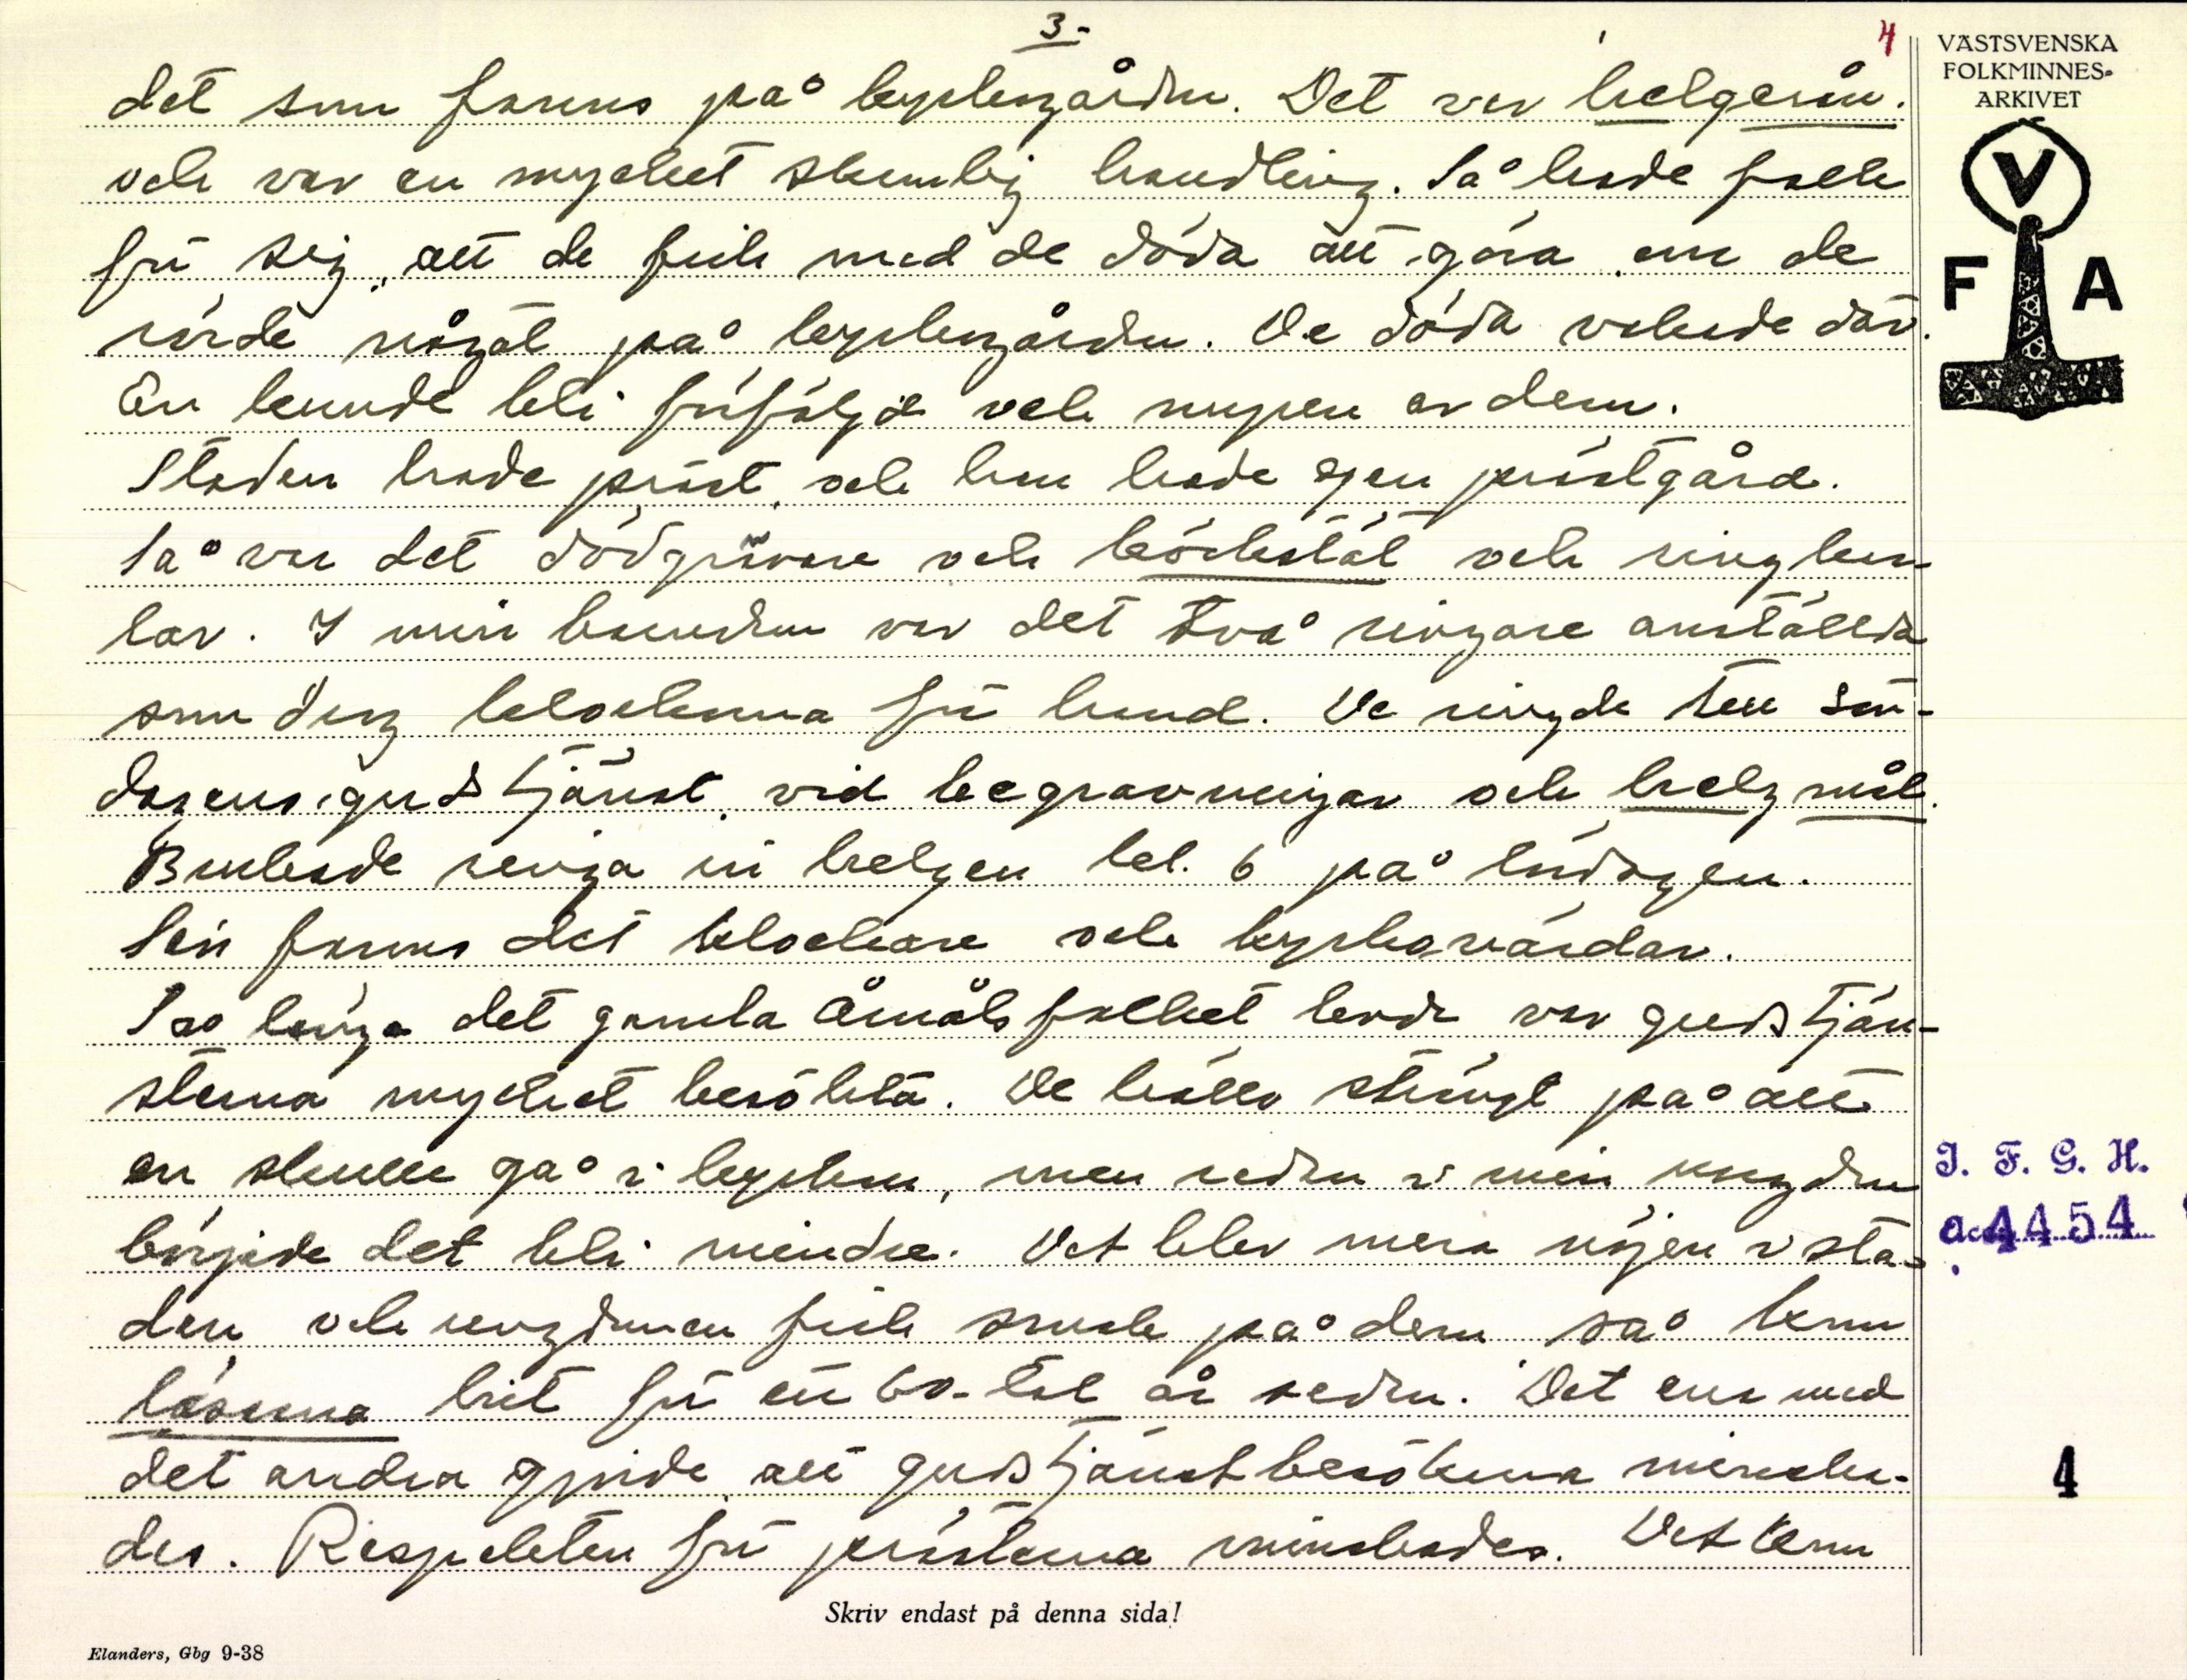 3-
4
det som fanns på kyrkogården. Det var helgerån.
och var en mycket skamlig handling. Så hade folk
för sig, att de fick med de döda att göra om de
rörde något på kyrkogården. De döda vakade där.
En kunde bli förföljd och nupen av dem.
Staden hade präst, och han hade egen prästgård.
Så var det dödgrävare och och ringkar-
lar. I min barndom var det två ringare anställda
som drog klockorna för hand. De ringde till sön-
dagens gudstjänst, vid begravningar och helgmål.
Brukade ringa in helgen kl. 6 på lördagen.
Sen fanns det klockare och kyrkovärdar.
Så länge det gamla Åmålsfolket levde var gudstjän-
sterna mycket besökta. De hållo strängt på att
en skulle gå i kyrkan, men redan i min ungdom
började det bli mindre. Det blev mera nöjen i sta-
den och ungdomen fick smak på dem så kom
läsarna hit för ett 60-tal år sedan. Det ena med
det andra gjorde, att gudstjänstbesöken minska-
des. Respekten för prästerna minskades. Det kom
Skriv endast på denna sida!
Elanders, Gbg 9-38
VÄSTSVENSKA
FOLKMINNES-
ARKIVET
V
F A
I. F. G. H.
Acc. 4454
4